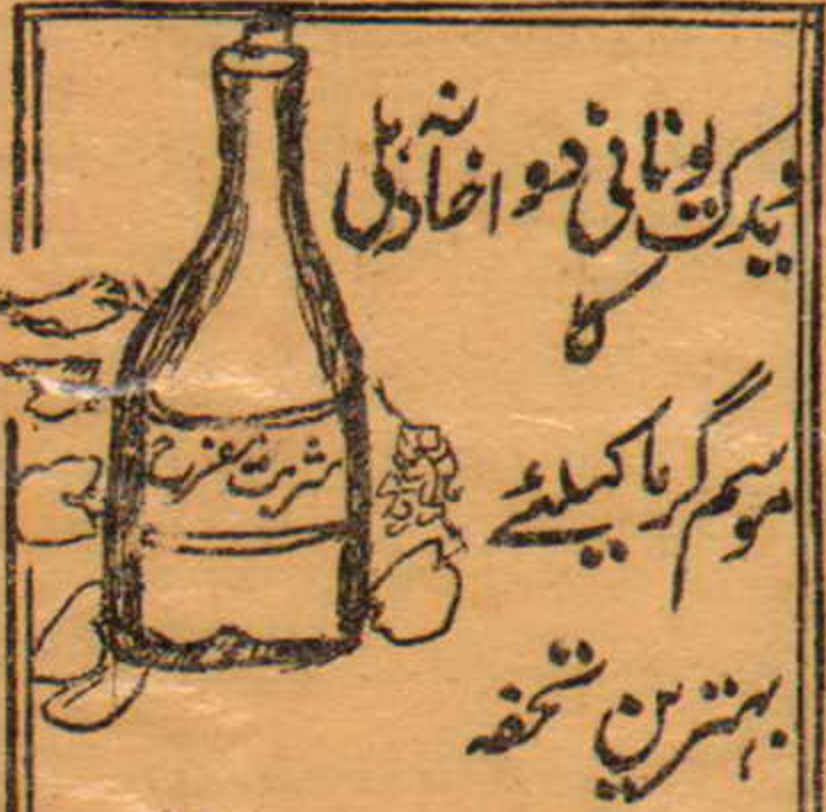 ویدک یونانی دواخانہ دہلی
کا
موسم گرما کیلئے
بہترین تحفہ
شربت